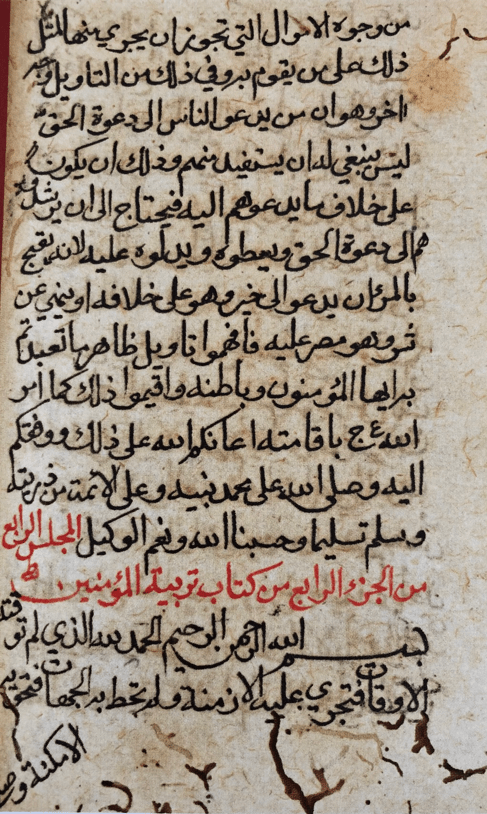 من وجوه الاموال التي تجوز ان يجري منها لمثل
ذلك على من يقوم به وفي ذلك من التاويل وجه
اخر وهو ان من يدعو الناس الى دعوة الحق
ليس ينبغي له ان يستفيد منهم وذلك ان يكون
على خلاف ما يدعوهم اليه فيحتاج الى ان يرشدو
هم الى دعوة الحق ويعطوه ويدلوه عليه لانه يقبح
بالمرء ان يدعو الى خير وهو على خلافه او ينهى عن
شر وهو مصر عليه فافهموا تاويل ظاهر ما تعبدتم
به ايها المؤمنون وباطنه واقيموا ذلك كما امر
الله ع ج باقامته اعانكم الله على ذلك ووفقكم
اليه وصلى الله على محمد نبيه وعلى الائمة من ذريته
وسلم تسليما وحسبنا الله ونعم الوكيل المجلس الرابع
من الجزء الرابع من كتاب تربية المؤمنين
بسم الله الرحمن الرحيم الحمد لله الذي لم توقته
الاوقات فتجري عليه الازمنة ولم تحط به الجهات فتحويه
الامكنة